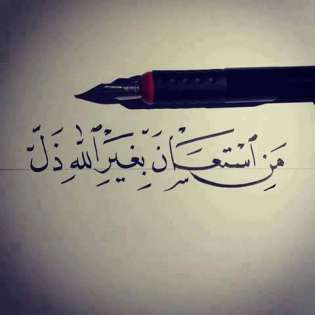 مَنِ ٱسْتَعَانَ بِغَيْرِ ٱللّٰهِ ذَلَّ